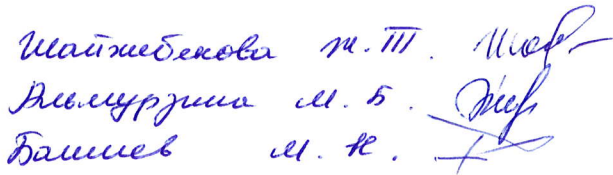 Шайжебекова Ж. Т.
Альмурзина М. Б.
Башиев М. К.